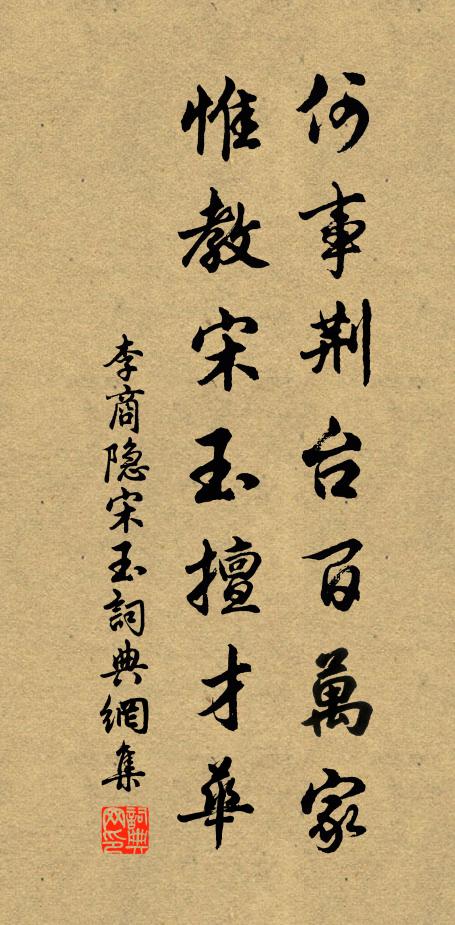 何事荆台百萬家
惟教宋玉擅才華
李商隐宋玉詞典網集
詞典网印